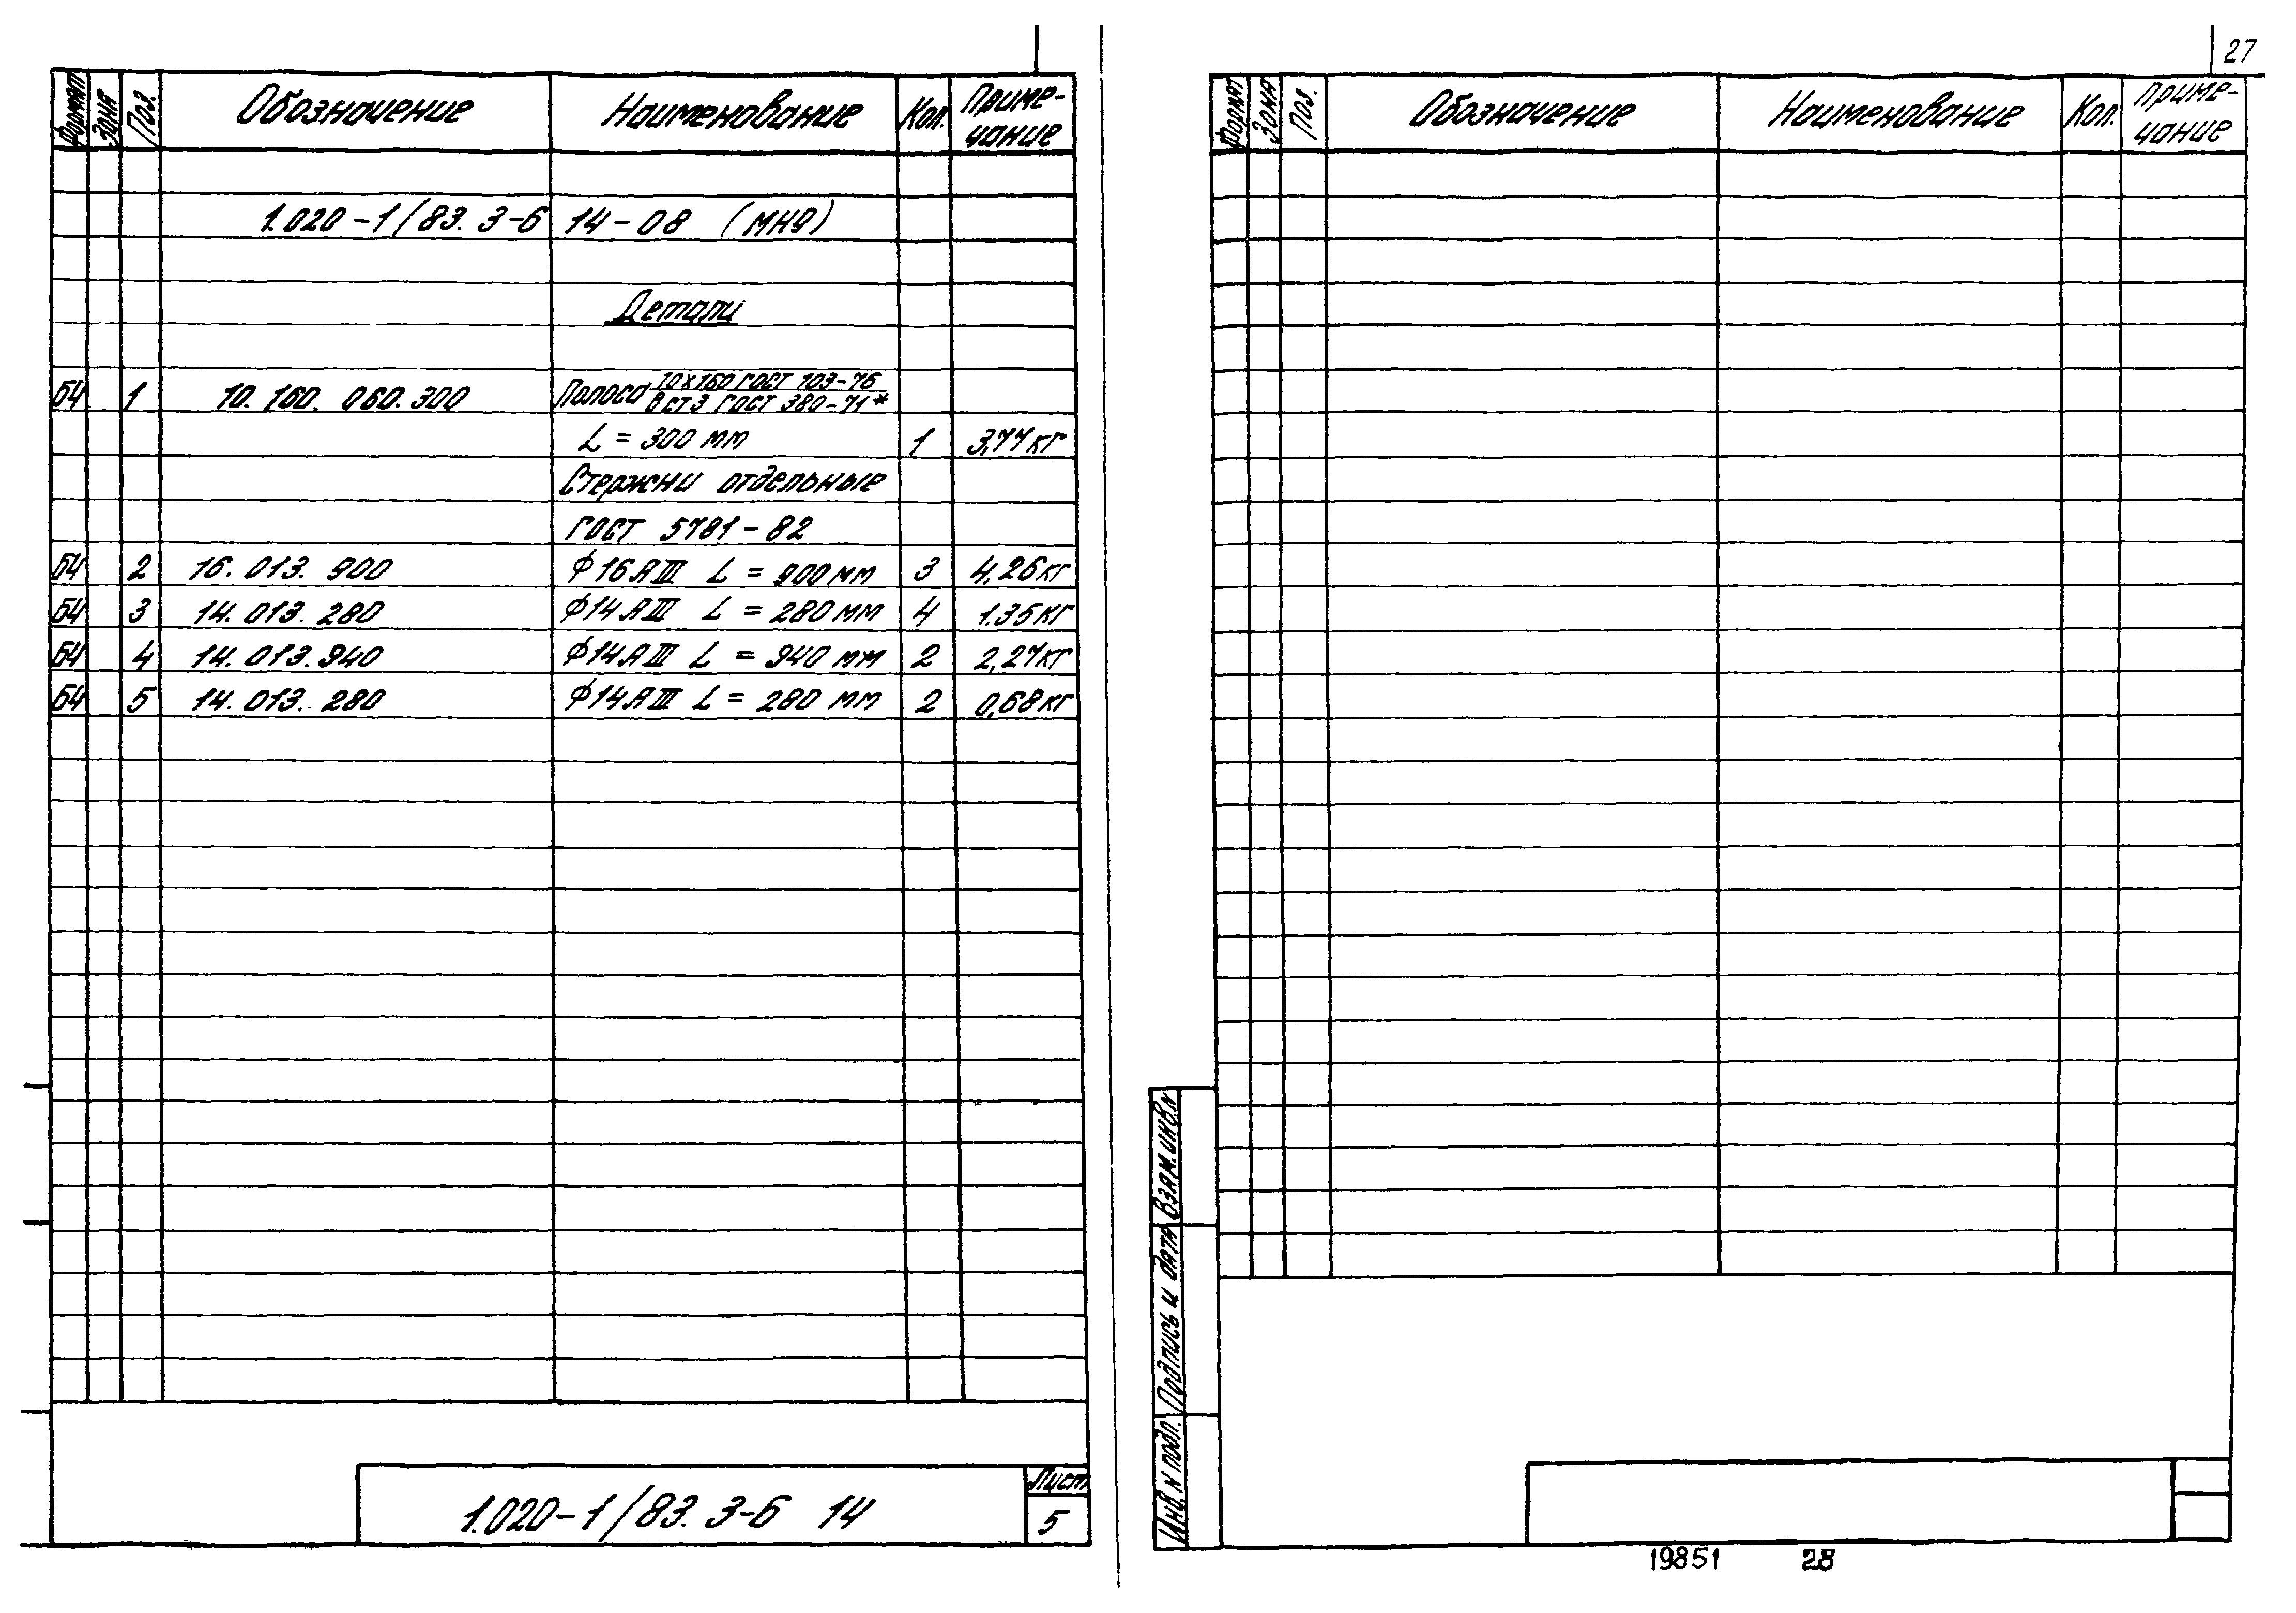 27
Формат Зона Поз. Обозначение Наименование Кол. Приме-
чание
1.020-1/83. 3-6 14-08 (МН9)
Детали
БЧ 1 10. 160. 060. 300 Полоса 10х160 ГОСТ 103-76
В ст 3 ГОСТ 380-71*
L = 300 мм 1 3,77 кг
Стержни отдельные
ГОСТ 5781-82
БЧ 2 16. 013. 900 Ф16АIII L = 900 мм 3 4,26 кг
БЧ 3 14. 013. 280 Ф14АIII L = 280 мм 4 1.35 кг
БЧ 4 14. 013. 940 Ф14АIII L = 940 мм 2 2,27 кг
БЧ 5 14. 013. 280 Ф14АIII L = 280 мм 2 0,68 кг
1.020-1/83. 3-6 14
Лист
5
Формат Зона Поз. Обозначение Наименование Кол. Приме-
чание
Взам. инв. N
Подпись и дата
Инв. N подл.
19851 28